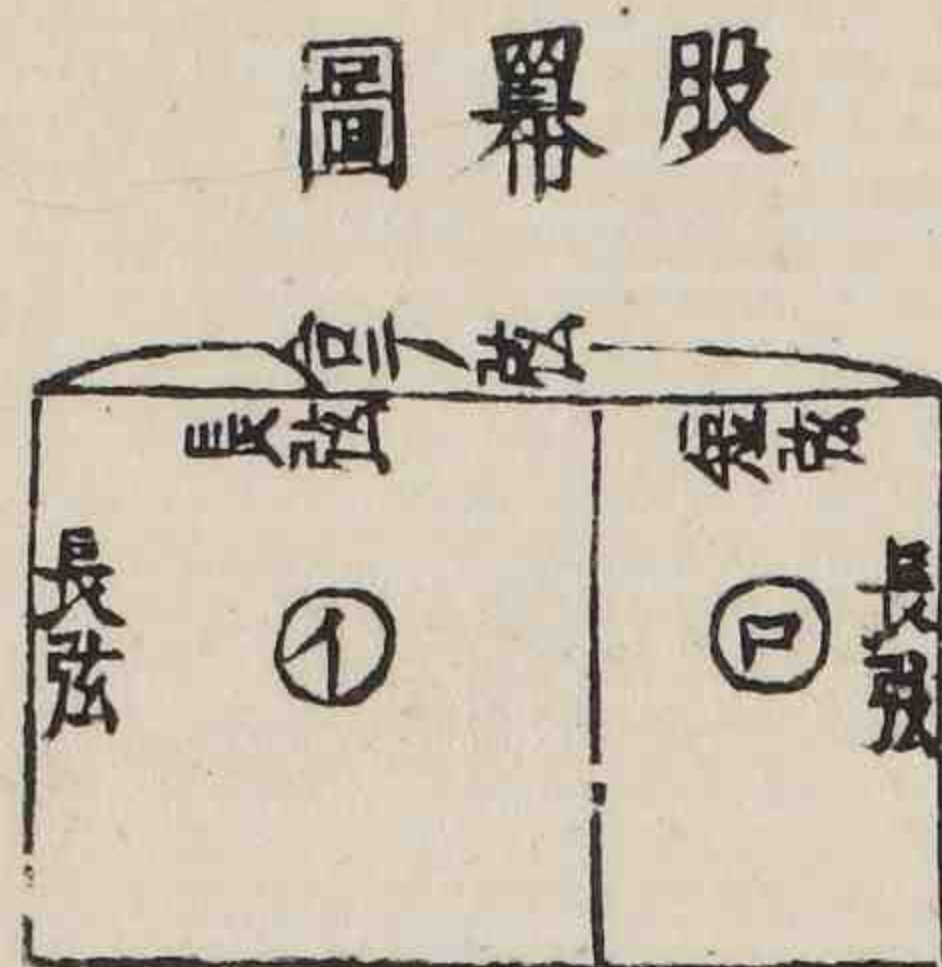 股羃圖
弦
長弦
短弦
長弦
イ
ロ
長弦